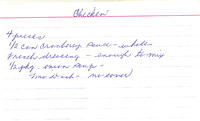 Chicken
4 pieces
1/2 can Cranberry Sauce - whole -
French dressing - enough to mix
1/2 pkg. onion soup -
1 hr - no cover